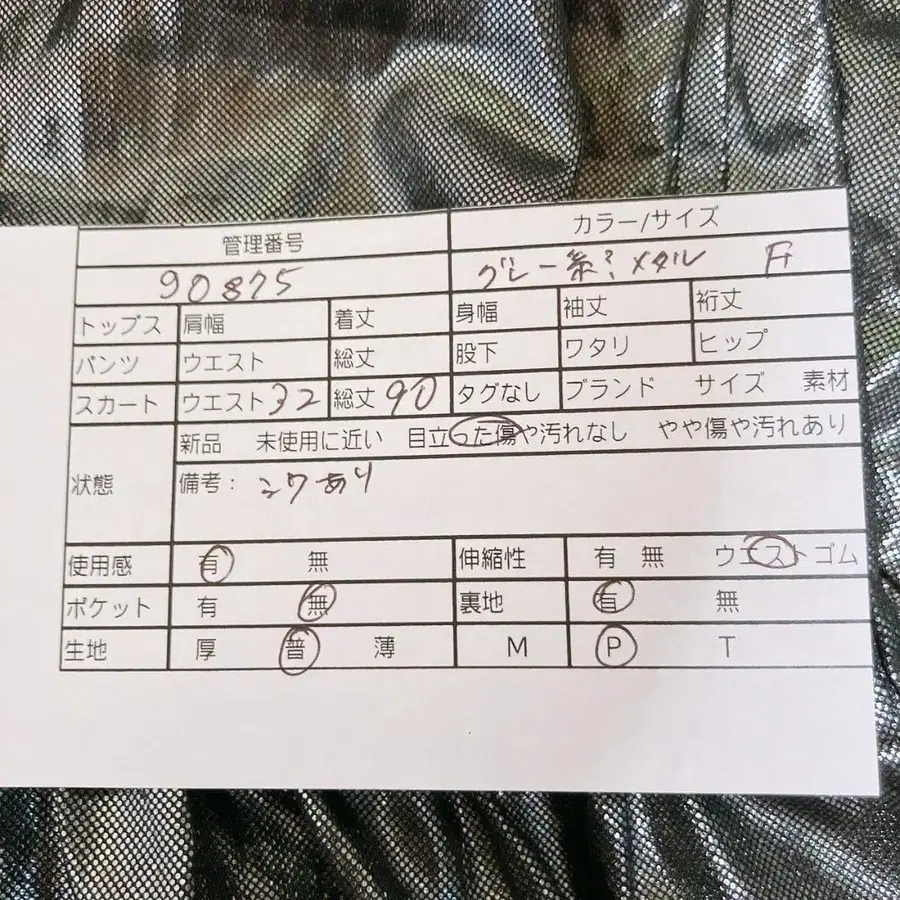 管理番号 カラー/サイズ
90875 グレー系 メタル F
トップス 肩幅 着丈 身幅 袖丈 裄丈
パンツ ウエスト 総丈 股下 ワタリ ヒップ
スカート ウエスト 32 総丈 90 タグなし ブランド サイズ 素材
状態 新品 未使用に近い 目立った傷や汚れなし やや傷や汚れあり
備考: シワあり
使用感 有 無 伸縮性 有 無 ウエストゴム
ポケット 有 無 裏地 有 無
生地 厚 普 薄 M P T